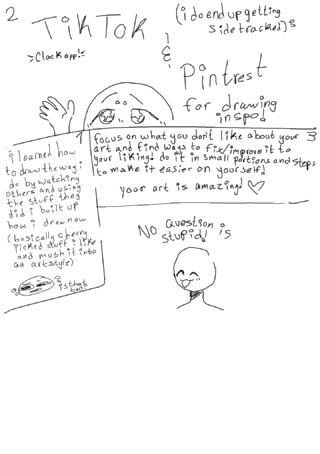 2
TikTok
>Clock app!<
&
(i do end up getting
side tracked)
Pintrest
for drawing
inspo!
1
i learned how
to draw the way i
do by watching
others and using
the stuff they
did i built up
how i draw now
(basically cherry
picked stuff i like
and mush it into
an artstyle)
is that
3
focus on what you don't like about your
art and find ways to fix/improve it to
your liking! do it in small portions and steps
to make it easier on yourself!
your art is amazing! ♡
No Question is
stupid!